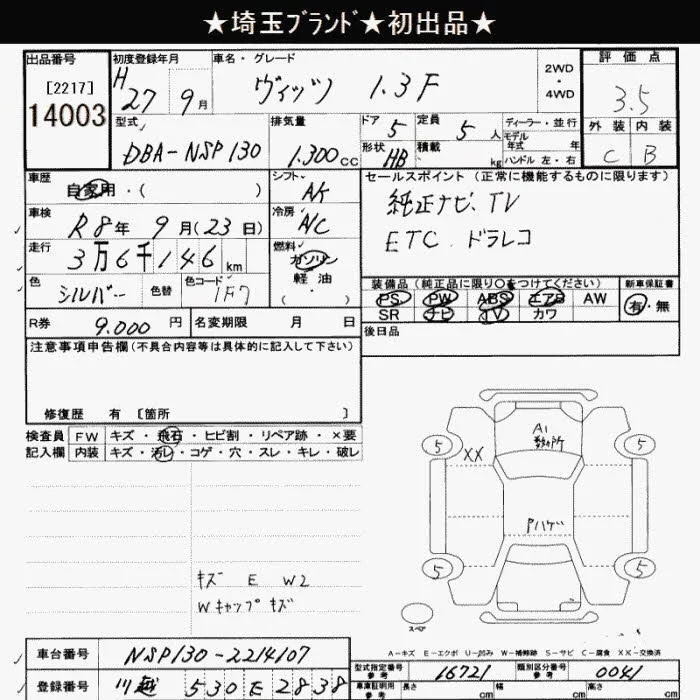 ★埼玉ブランド★初出品★
出品番号
[2217]
14003
初度登録年月
H 27年 9月
車名・グレード
ヴィッツ 1.3F
2WD
・
4WD
評価点
3.5
外装 内装
C B
型式
DBA-NSP130
排気量
1.300cc
ドア 5
形状 HB
定員 5人
積載 kg
ディーラー・並行
モデル年式 年
ハンドル 左・右
車歴
自家用・( )
シフト
AK
車検
R8年 9月(23日)
冷房
A/C
走行
3万6千146km
燃料
ガソリン
軽・油
( )
色
シルバー
色替
色コード
1F7
R券 9.000円
名変期限 月 日
セールスポイント(正常に機能するものに限ります)
純正ナビ、TV
ETC、ドラレコ
装備品(純正品に限り○をつけてください)
新車保証書
PS PW ABS エアB AW
SR ナビ TV カワ
有・無
後日品
注意事項申告欄(不具合内容等は具体的に記入して下さい)
修復歴 有 [箇所 ]
検査員
記入欄
FW キズ・飛石・ヒビ割・リペア跡・×要
内装 キズ・汚レ・コゲ・穴・スレ・キレ・破レ
キズ E W2
Wキャップキズ
A1
数ヶ所
XX
Pハゲ
5 5
5 5
スペア
3.5
A-キズ E-エクボ U-凹み W-補修跡 S-サビ C-腐食 XX-交換済
車台番号 NSP130-2214107
登録番号 川越 530 E 2838
型式指定番号
参考
16721
類別区分番号
参考
0041
車庫証明用
参考
長さ cm 幅 cm 高さ cm